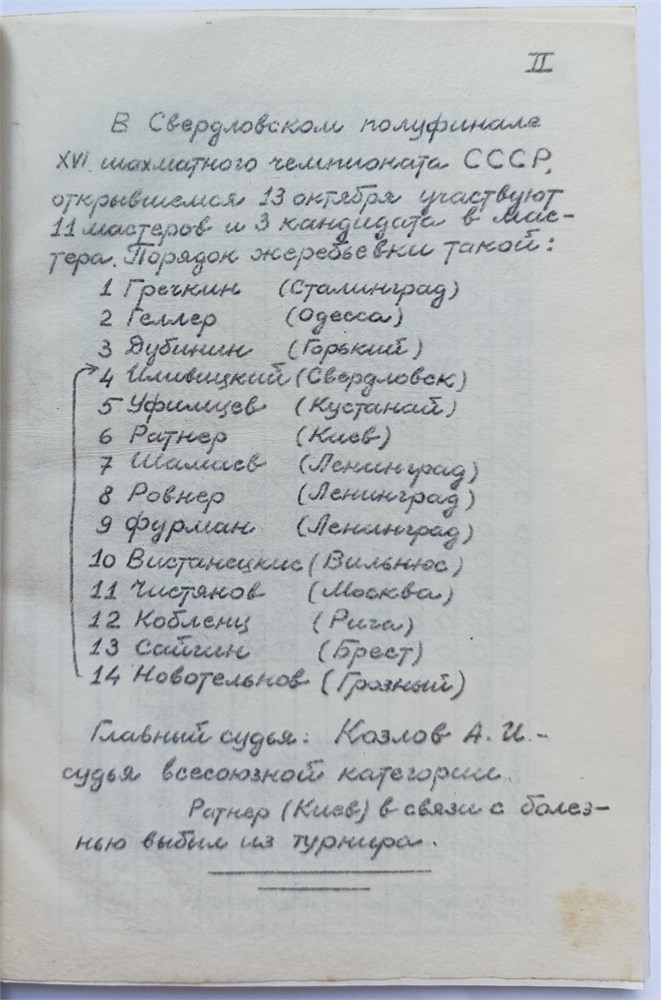 II
В Свердловском полуфинале
XVI шахматного чемпионата СССР,
открывшемся 13 октября участвуют
11 мастеров и 3 кандидата в мас-
тера. Порядок жеребьевки такой:
1 Гречкин (Сталинград)
2 Геллер (Одесса)
3 Дубинин (Горький)
4 Иливицкий (Свердловск)
5 Уфимцев (Кустанай)
6 Ратнер (Киев)
7 Шамаев (Ленинград)
8 Ровнер (Ленинград)
9 Фурман (Ленинград)
10 Вистанецкис (Вильнюс)
11 Чистяков (Москва)
12 Кобленц (Рига)
13 Сайгин (Брест)
14 Новотельнов (Грозный)
Главный судья: Козлов А. И. -
судья всесоюзной категории.
Ратнер (Киев) в связи с болез-
нью выбыл из турнира.